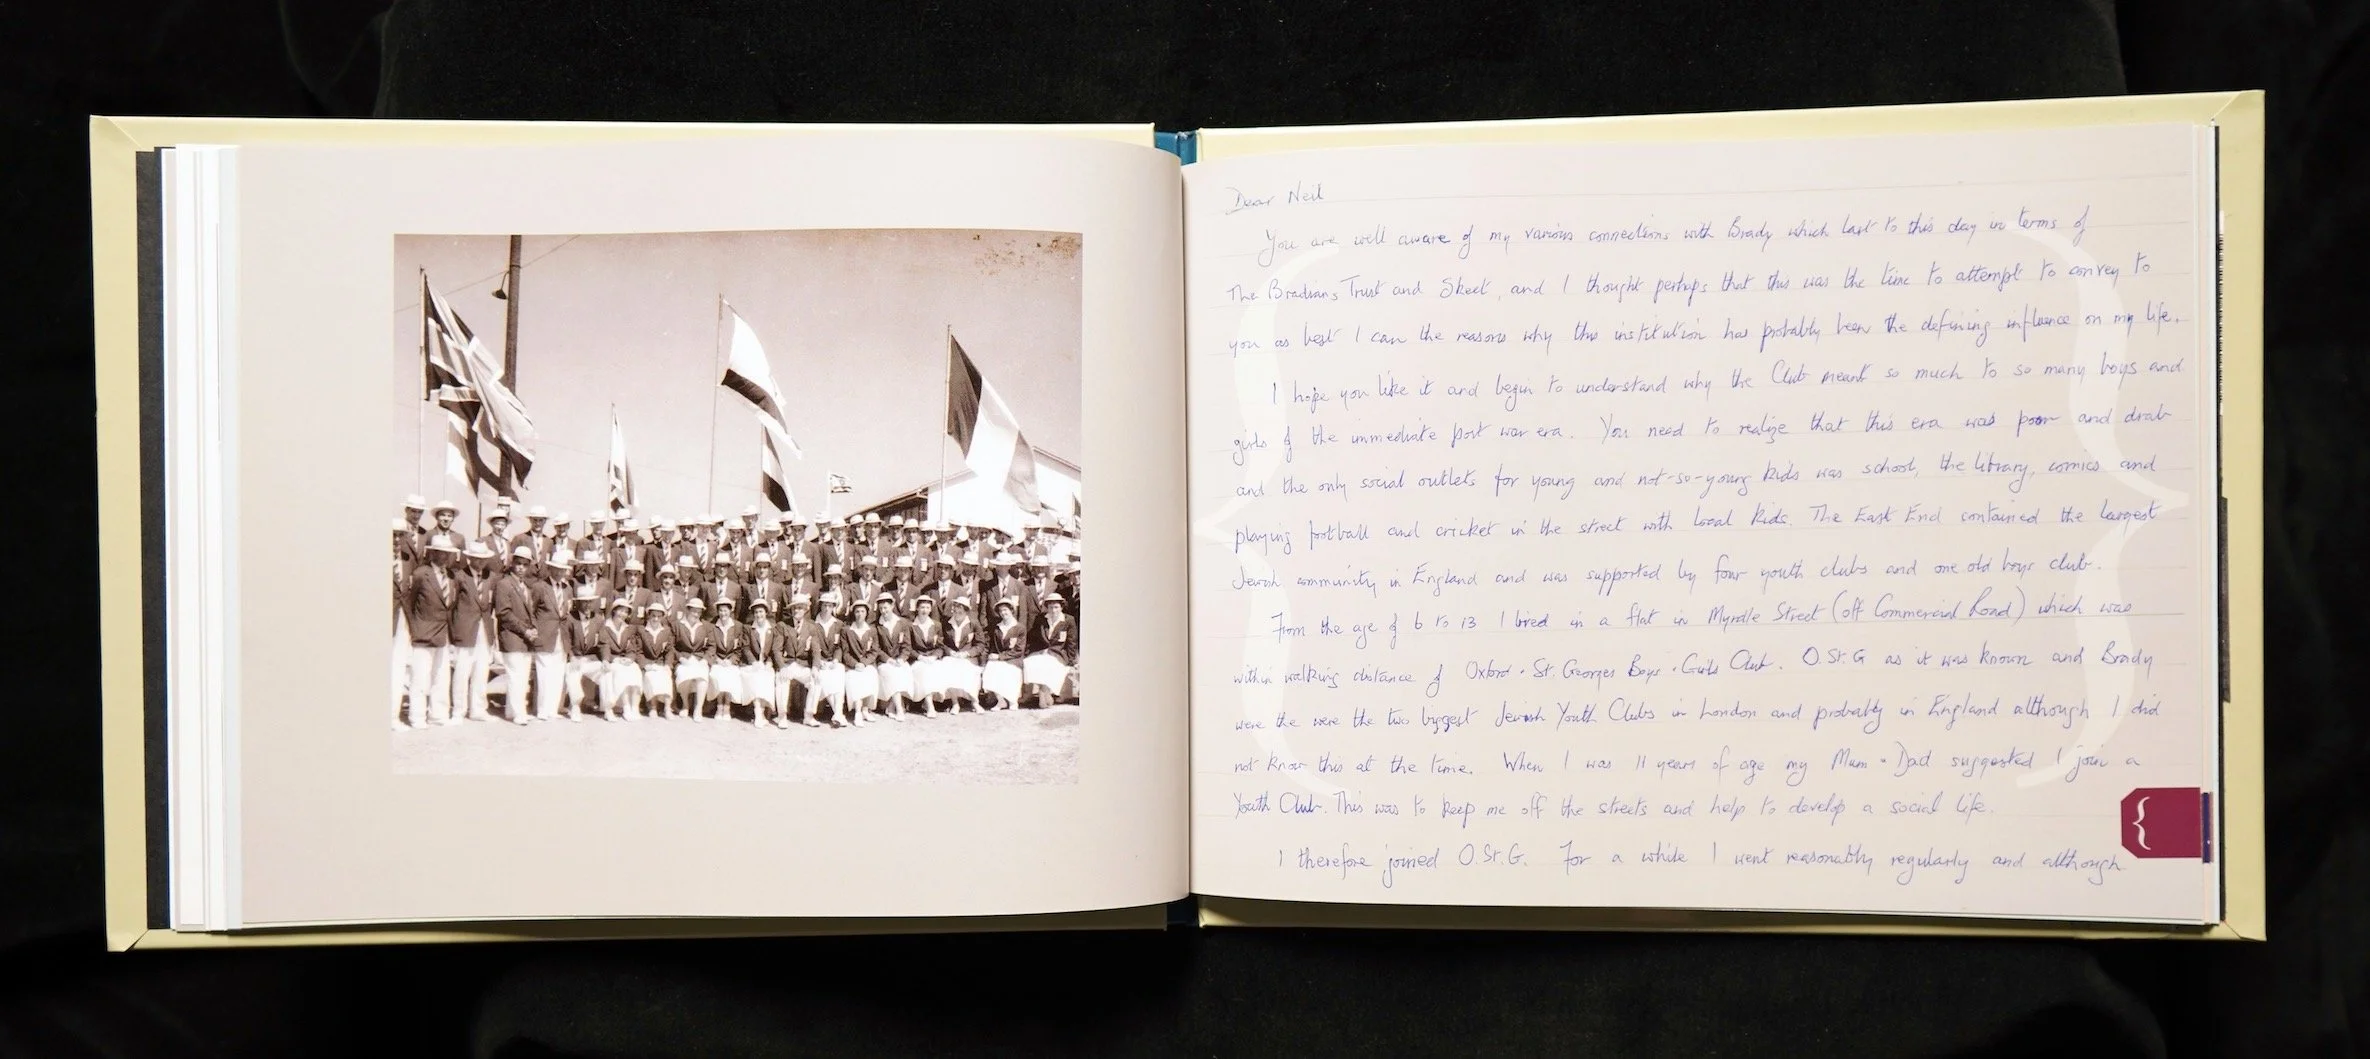 Dear Neil
You are well aware of my various connections with Brady which last to this day in terms of
The Bradians Trust and Skeet, and I thought perhaps that this was the time to attempt to convey to
you as best I can the reasons why this institution has probably been the defining influence on my life.
I hope you like it and begin to understand why the Club meant so much to so many boys and
girls of the immediate post war era. You need to realize that this era was poor and drab
and the only social outlets for young and not-so-young kids was school, the library, comics and
playing football and cricket in the street with local kids. The East End contained the largest
Jewish community in England and was supported by four youth clubs and one old boys club.
From the age of 6 to 13 I lived in a flat in Myrdle Street (off Commercial Road) which was
within walking distance of Oxford & St. Georges Boys & Girls Club. O.St.G as it was known and Brady
were the were the two biggest Jewish Youth Clubs in London and probably in England although I did
not know this at the time. When I was 11 years of age my Mum & Dad suggested I join a
Youth Club. This was to keep me off the streets and help to develop a social life.
I therefore joined O.St.G. For a while I went reasonably regularly and although